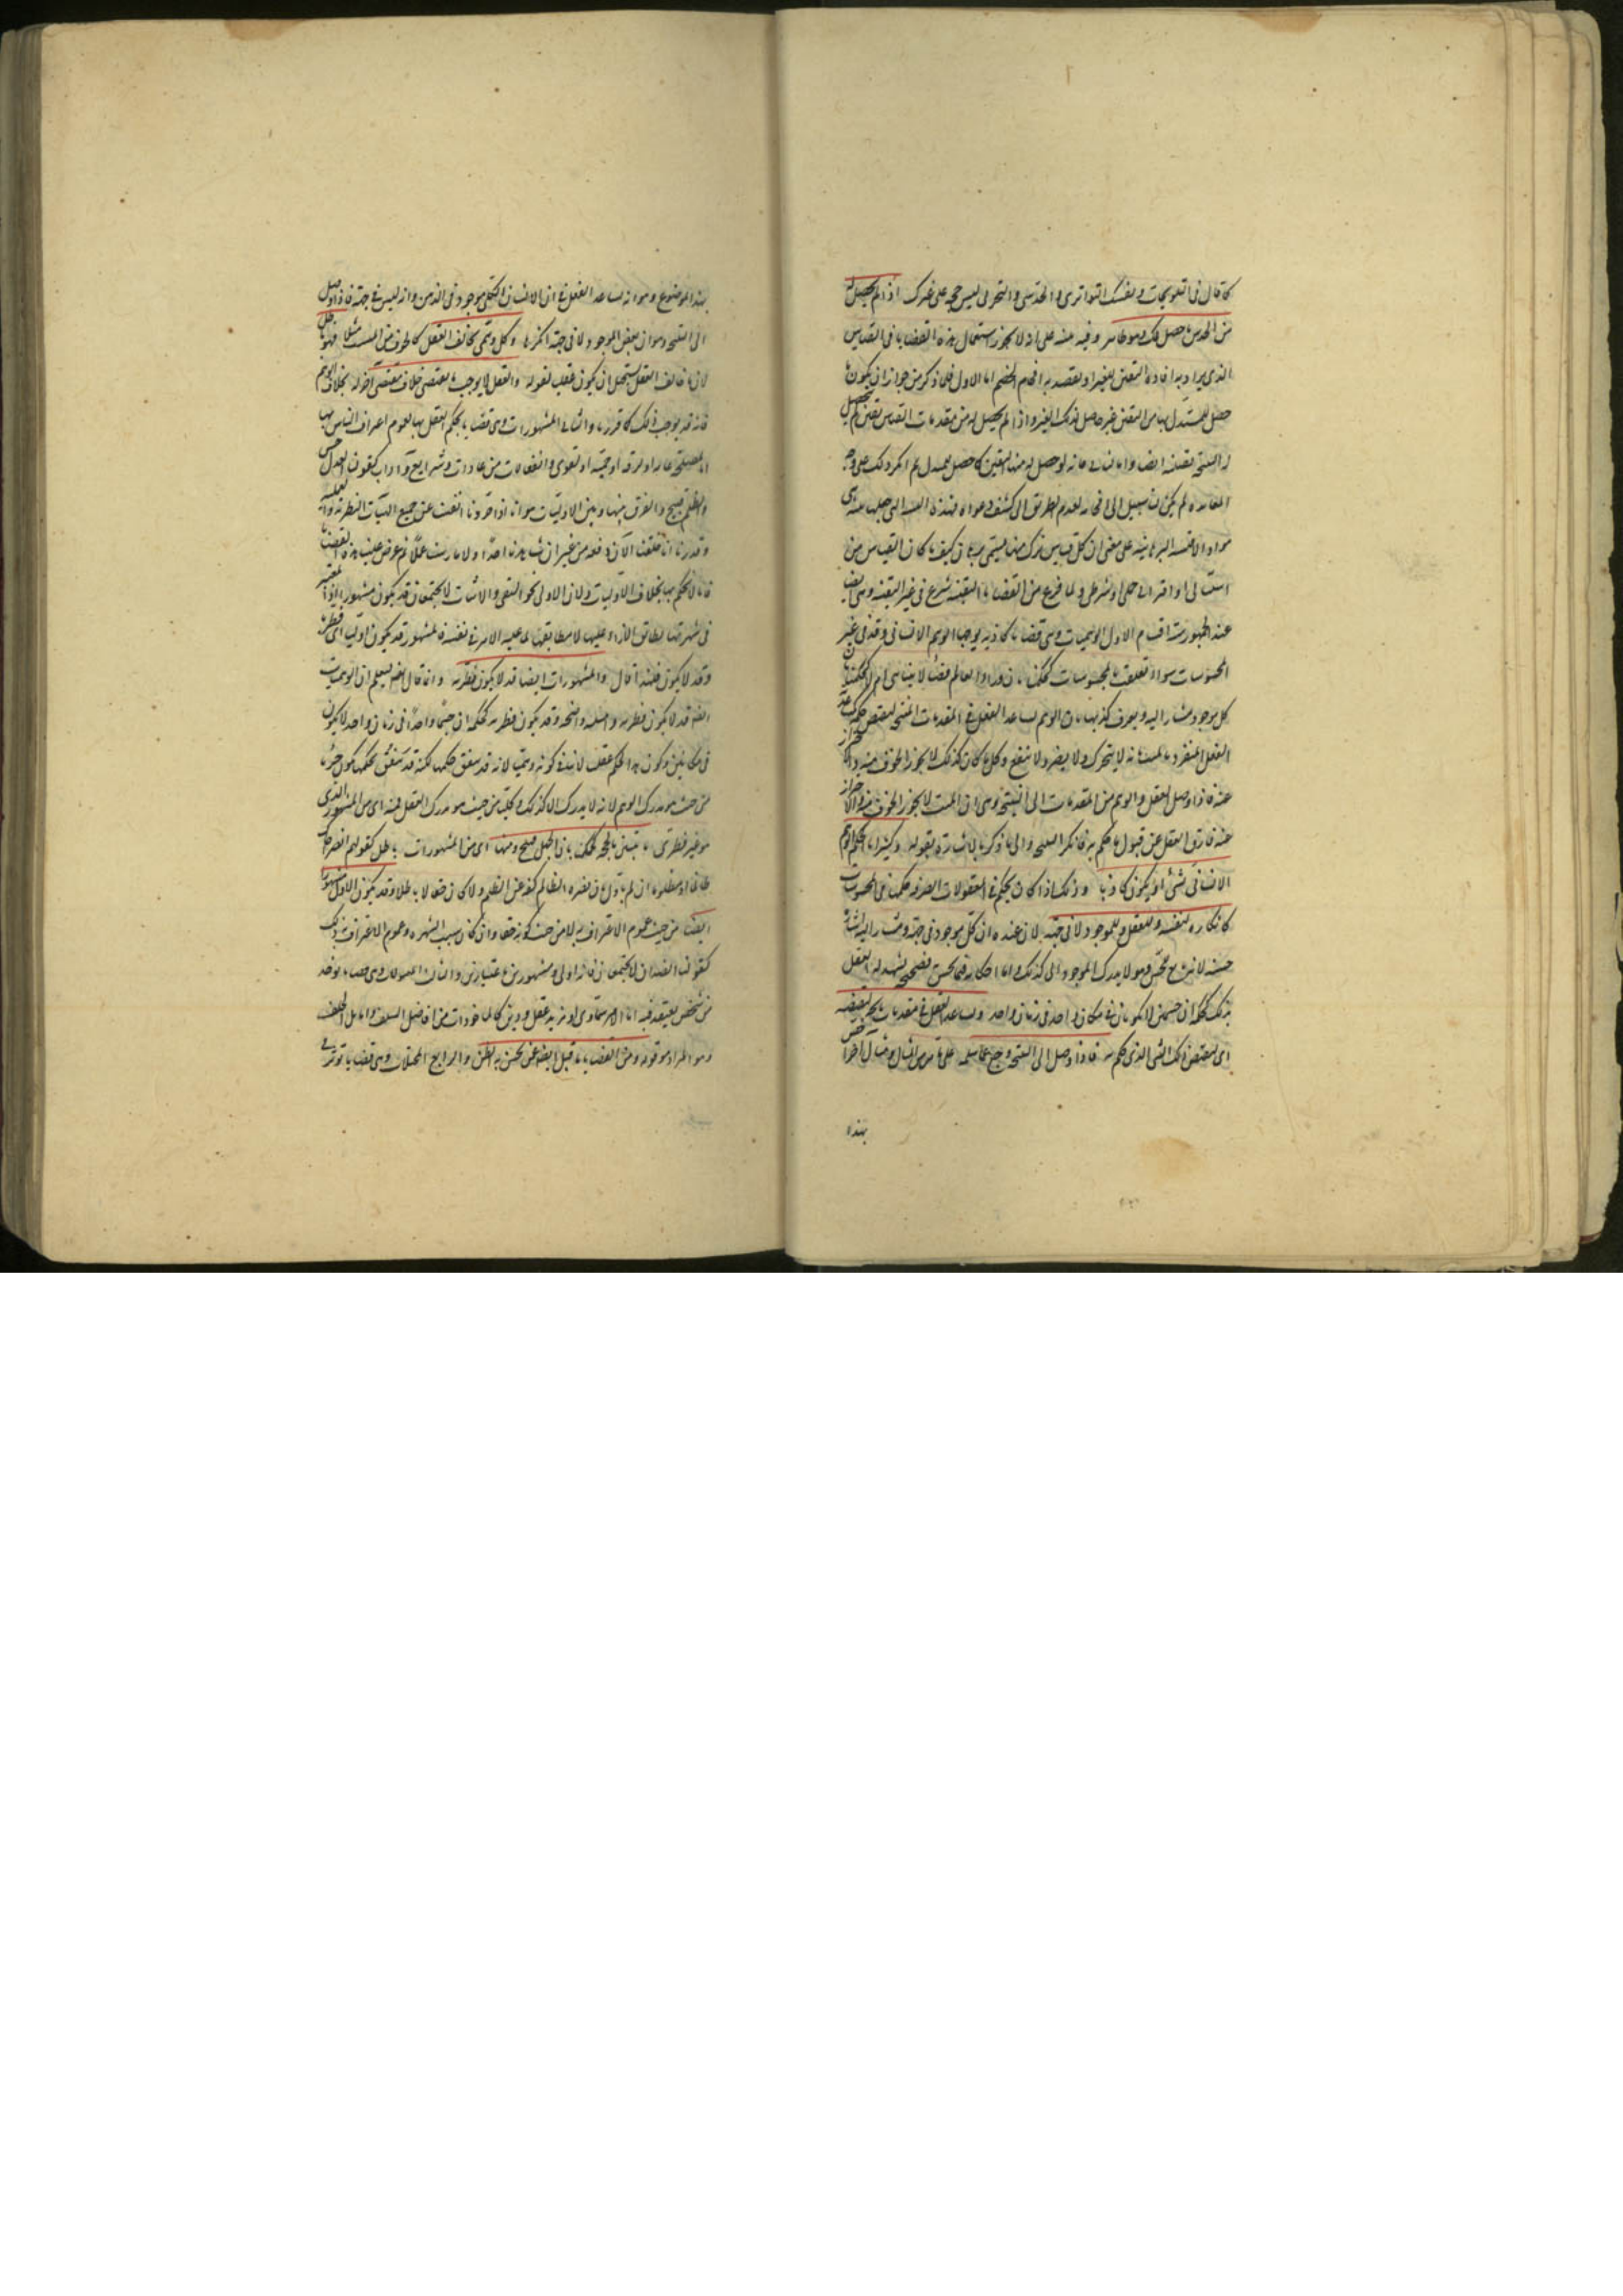 كما قال فى التلويحات ونفسك التواترى والحدسى والتجربى ليس حجة على غيرك اذا لم يحصل له
من الحدس ما حصل لك وهو ظاهر وفيه منه على انه لا يجوز استعمال هذه القضايا فى القياس
الذى يراد به افادة اليقين للغير او يقصد به افحام الخصم اما الاول فلما ذكر من جواز ان يكون ما
حصل للمستدل بها من اليقين غير حاصل لذلك الغير واذا لم يحصل له من مقدمات القياس يقين لم يحصل
له النتيجة يقينية ايضا واما الثانى فانه لو حصل له منها اليقين كما حصل للمستدل ثم انكر ذلك على وجه
المعاندة لم يكن لنا سبيل الى افحامه لعدم الطريق الى كشف دعواه فهذه الستة التى جعلها منه هى
مواد الاقيسة البرهانية على معنى ان كل قياس تركب منها يسمى برهان كيف ما كان القياس من
استثنائى او اقترانى حملى او شرطى ولما فرغ من القضايا اليقينية شرع فى غير اليقينية وهى ايضا
عند الجمهور ستة اقسام الاول الوهميات وهى قضايا كاذبة يوجبها الوهم الانسانى وقد فى غير
المحسوسات سواء تعلقت بالمحسوسات كحكمنا بان وراء العالم فضاء لا يتناهى ام لا كحكمنا بان
كل موجود مشار اليه ويعرف كذبها بان الوهم يساعد العقل فى المقدمات المنتجة لنقيض حكمه كما عد
العقل المنفرد بالميت انه لا يتحرك ولا يضر ولا ينفع وكل ما كان كذلك لا يجوز الخوف منه والاحتراز
عنه فاذا وصل العقل والوهم من المقدمات الى النتيجة وهى ان الميت لا يجوز الخوف منه والاحتراز
عنه فارق العقل عن قبول ما حكم به فانكر النتيجة والى ما ذكرنا الاشارة بقوله وكثيرا ما يحكم الوهم
الانسانى بشئ او يكون كاذبا وذلك اذا كان يحكم فى المعقولات الصرفة حكمه فى المحسوسات
كانكاره لنفسه وللعقل وللموجود لا فى جهة لان عنده ان كل موجود فى جهة ومشار اليه اشارة
حسية لانه تابع للحس وهو لا يدرك الموجود الا كذلك واما احكامه فيما يحس فصحيحة يشهد له العقل
بذلك كحكمه ان جسمين لا يكونان فى مكان واحد فى زمان واحد ويساعد العقل فى مقدمات ناتجة لنقيضه
اى لنقيض ذلك الشئ الذى حكم به فاذا وصل الى النتيجة رجع عما سلمه على ما مر مثاله ومثال آخر
بهذا
بهذا الموضوع وهو انه يساعد العقل فى ان الانسان الكلى موجود فى الذهن وانه ليس فى جهة فاذا وصل
الى النتيجة وهو ان بعض الموجود لا فى جهة انكرها وكل وهمى يخالف العقل كالخوف من الميت مثلا فهو باطل
لان ما خالف العقل يستحيل ان يكون عقليا لقوله والعقل لا يوجب ما يقتضى خلاف مقتضى آخر له بخلاف الوهم
فانه قد يوجب ذلك كما قررنا والثانى المشهورات وهى قضايا يحكم العقل بها لعموم اعتراف الناس بها
اما لمصلحة عامة او لرقة او حمية او لقوى وانفعالات من عادات وشرايع وآداب كقولنا العدل حسن
والظلم قبيح والفرق بينها وبين الاوليات هو انا اذا جردنا انفسنا عن جميع الهيآت النظرية والعملية
وقدرنا انا خلقنا الآن دفعة من غير ان شاهدنا احدا ولا مارسنا عملا ثم عرض علينا هذه القضايا
فانا لا نحكم بها بخلاف الاوليات ولان الاولى نحو النفى والاثبات لا يجتمعان قد يكون مشهورا اذ المعتبر
فى شهرتها تطابق الآراء عليها لا مطابقتها لما عليه الامر فى نفسه فالمشهور قد يكون اوليا اى فطريا
وقد لا يكون فلهذا قال والمشهورات ايضا قد لا يكون فطرية وانما قال ايضا ليعلم ان الوهميات
ايضا قد لا يكون فطرية وامثلته واضحة وقد يكون فطرية كحكمه ان جسما واحدا فى زمان واحد لا يكون
فى مكانين وكون هذا الحكم عقليا لا ينافى كونه وهميا لانه قد يتفق حكمهما لكنه قد يتفق بحكمهما كون جزئيا
من حيث هو مدرك الوهم لانه لا يدرك الا كذلك وكليا من حيث هو مدرك العقل فمنه اى من المشهور الذى
هو غير فطرى ما يتبين بالحجة كحكمنا بان الجهل قبيح ومنها اى من المشهورات باطل كقولهم انصر اخاك
ظالما او مظلوما ان لم يأول بان نصرة الظالم كفه عن الظلم ولا كان حقا لا باطلا وقد يكون الاولى مشهورا
ايضا من حيث عموم الاعتراف به لا من حيث كونه حقا وان كان سبب الشهرة وعموم الاعتراف بذلك
كقولنا الضدان لا يجتمعان فانه اولى ومشهور من اعتبارين والثالث المقبولات وهى قضايا يؤخذ
من شخص يعتقد فيه اما لامر سماوى او مزيد عقل ودين كالمأخوذات من افاضل السلف واماثل الخلف
وهو المراد بقوله ومن القضايا ما قبل ايضا عن يحسن به الظن والرابع المخيلات وهى قضايا تؤثر فى